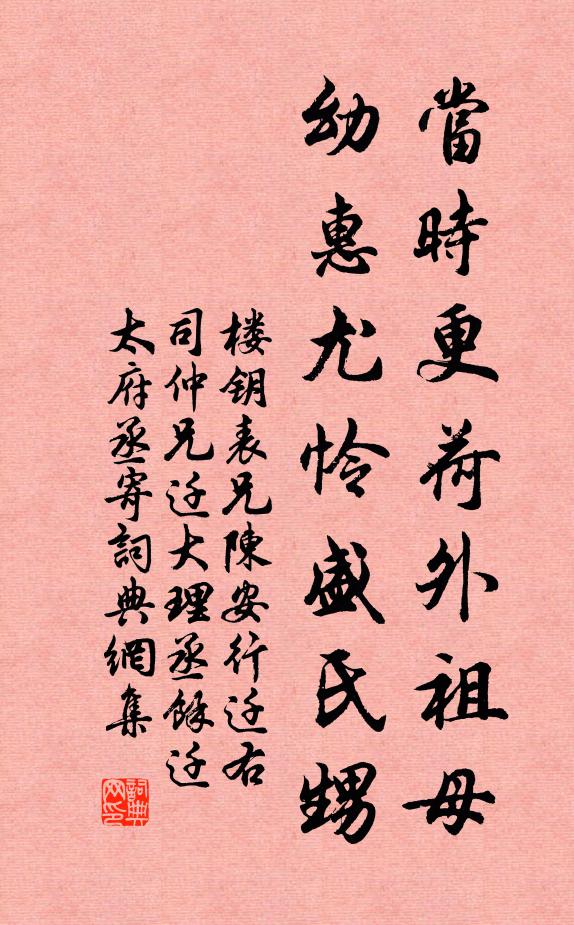 當時更荷外祖母
幼惠尤怜盛氏甥
楼钥表兄陳安行迁右
司仲兄迁大理丞餘迁
太府丞寄詞典網集
詞典网印